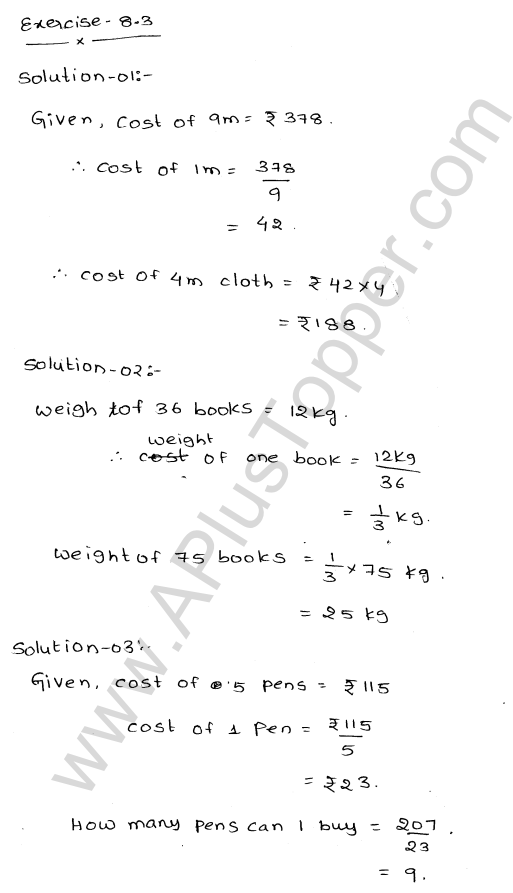 Exercise - 8.3
x
Solution-01:-
Given, cost of 9m = ₹ 378.
∴ cost of 1m = 378/9
= 42.
∴ cost of 4m cloth = ₹ 42 x 4
= ₹ 188.
Solution-02:-
weigh tof 36 books = 12kg.
weight
∴ cost of one book = 12kg/36
= 1/3 kg.
weight of 75 books = 1/3 x 75 kg.
= 25 kg
Solution-03:-
Given, cost of 5 pens = ₹ 115
cost of 1 Pen = ₹115/5
= ₹23.
How many pens can I buy = 207/23.
= 9.
www.APlusTopper.com